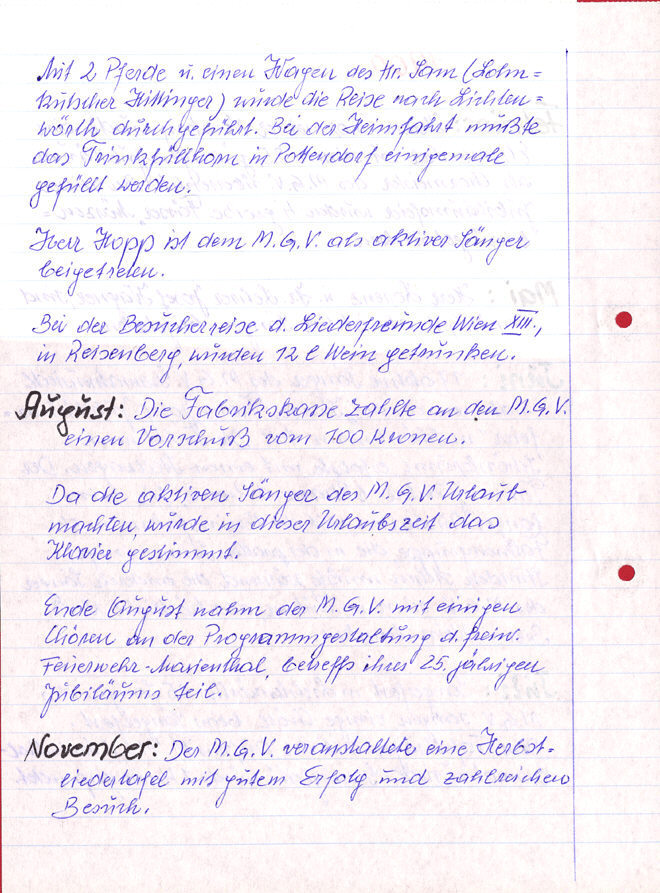 Mit 2 Pferde u. einen Wagen des Hr. Sam (Lohn=
kutscher Hittinger) wurde die Reise nach Lichten=
wörth durchgeführt. Bei der Heimfahrt mußte
das Trinkfüllhorn in Pottendorf einigemale
gefüllt werden.
Herr Hopp ist dem M.G.V. als aktiver Sänger
beigetreten.
Bei der Besucherreise d. Liederfreunde Wien XIII.,
in Reisenberg, wurden 12 l Wein getrunken.
August: Die Fabrikskasse zahlte an den M.G.V.
einen Vorschuß vom 100 Kronen.
Da die aktiven Sänger des M.G.V. Urlaub
machten, wurde in dieser Urlaubszeit das
Klavier gestimmt.
Ende August nahm der M.G.V. mit einigen
Chören an der Programmgestaltung d. freiw.
Feuerwehr-Marienthal, betreffs ihres 25. jährigen
Jubiläums teil.
November: Der M.G.V. veranstaltete eine Herbst=
liedertafel mit gutem Erfolg und zahlreichen
Besuch.